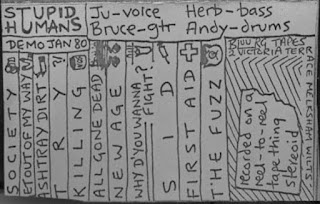 STUPID HUMANS
Ju-voice Herb-bass
Bruce-gtr Andy-drums
DEMO JAN 80
SOCIETY
GET OUT OF MY WAY
ASHTRAY DIRT
TRY?
KILLING
ALL GONE DEAD
NEW AGE
WHY D'YOU WANNA FIGHT?
SID
FIRST AID
THE FUZZ
TAPES
VICTORIA TERRACE MELKSHAM WILTS
recorded on a
reel-to-reel
tape thing
stereoid